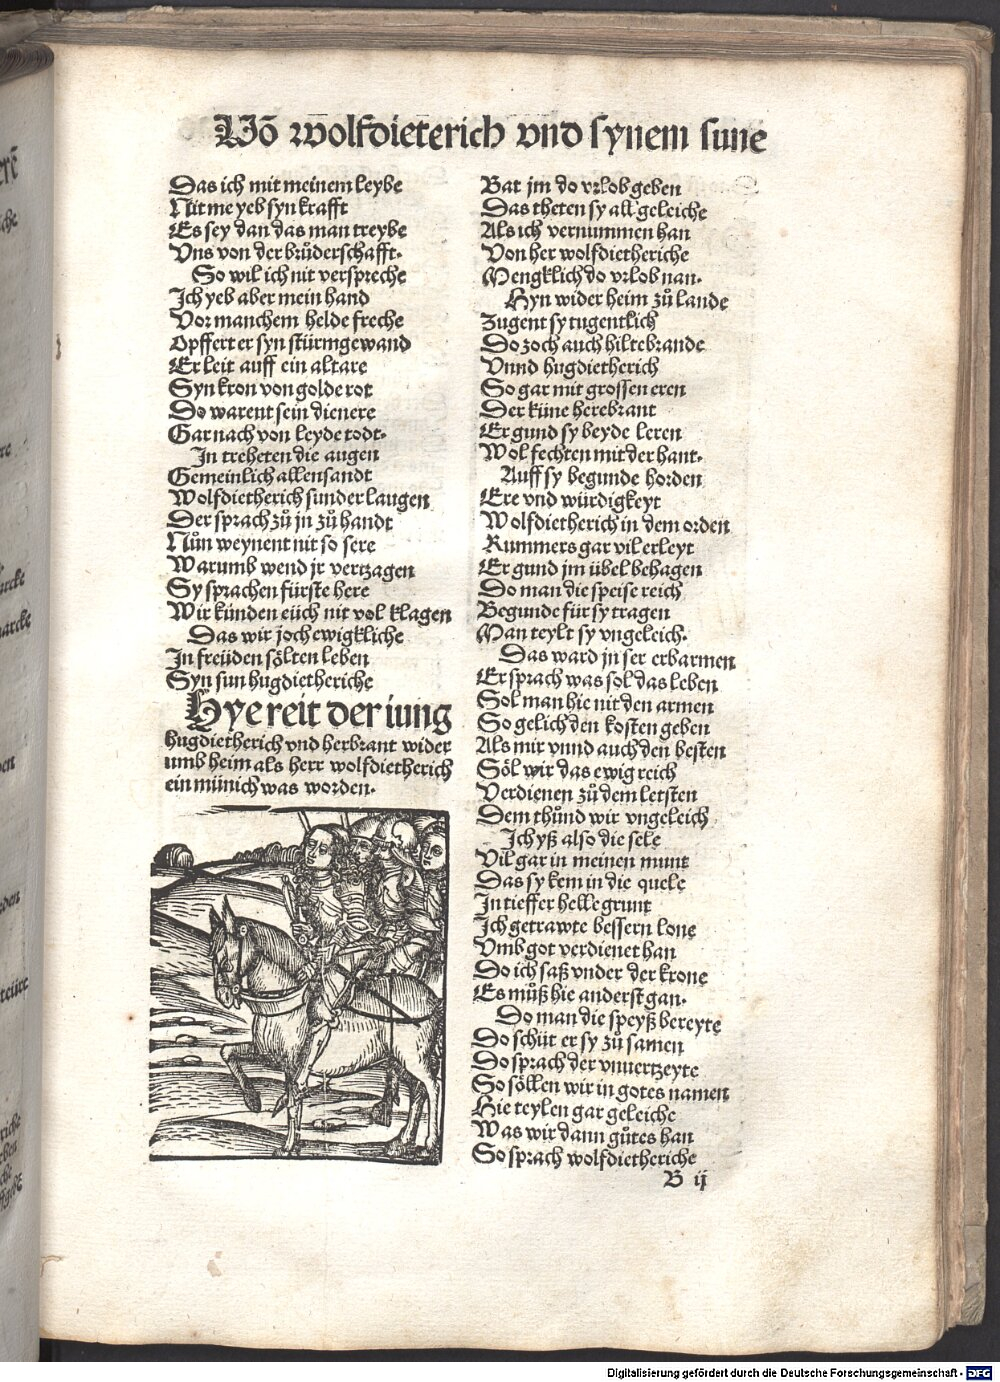 Võ wolfdieterich vnd synem sune
Das ich mit meinem leybe
Nit me yeb syn krafft
Es sey dan das man treybe
Vns von der brůderschafft.
So wil ich nit verspreche
Ich yeb aber mein hand
Vor manchem helde freche
Opffert er syn stürmgewand
Er leit auff ein altare
Syn kron von golde rot
Do warent sein dienere
Gar nach von leyde todt.
In treheten die augen
Gemeinlich allensandt
Wolfdietherich sunder laugen
Der sprach zů jn zů handt
Nůn weynent nit so sere
Warumb wend jr vertzagen
Sy sprachen fürste here
Wir künden eüch nit vol klagen
Das wir joch ewigkliche
In freüden sölten leben
Syn sun hugdietheriche
Hye reit der iung
hugdietherich vnd herbrant wider
umb heim als herr wolfdietherich
ein münich was worden.
Bat jm do vrlob geben
Das theten sy all geleiche
Als ich vernummen han
Von her wolfdietheriche
Mengklich do vrlob nan.
Hyn wider heim zů lande
Zugent sy tugentlich
Do zoch auch hiltebrande
Vnnd hugdietherich
So gar mit grossen eren
Der küne herebrant
Er gund sy beyde leren
Wol fechten mit der hant.
Auff sy begunde horden
Ere vnd würdigkeyt
Wolfdietherich in dem orden
Kummers gar vil erleyt
Er gund jm übel behagen
Do man die speise reich
Begunde für sy tragen
Man teylt sy vngeleich.
Das ward jn ser erbarmen
Er sprach was sol das leben
Sol man hie nit den armen
So gelich den kosten geben
Als mir vnnd auch den besten
Söl wir das ewig reich
Verdienen zů dem letsten
Dem thůnd wir vngeleich
Ich yß also die sele
Vil gar in meinen munt
Das sy kem in die quele
In tieffer helle grunt
Ich getrawte bessern lone
Vmb got verdienet han
Do ich saß vnder der krone
Es můß hie anderst gan.
Do man die speyß bereyte
Do schüt er sy zů samen
Do sprach der vnuertzeyte
So söllen wir in gotes namen
Hie teylen gar geleiche
Was wir dann gůtes han
So sprach wolfdietheriche
B ij
Digitalisierung gefördert durch die Deutsche Forschungsgemeinschaft - DFG